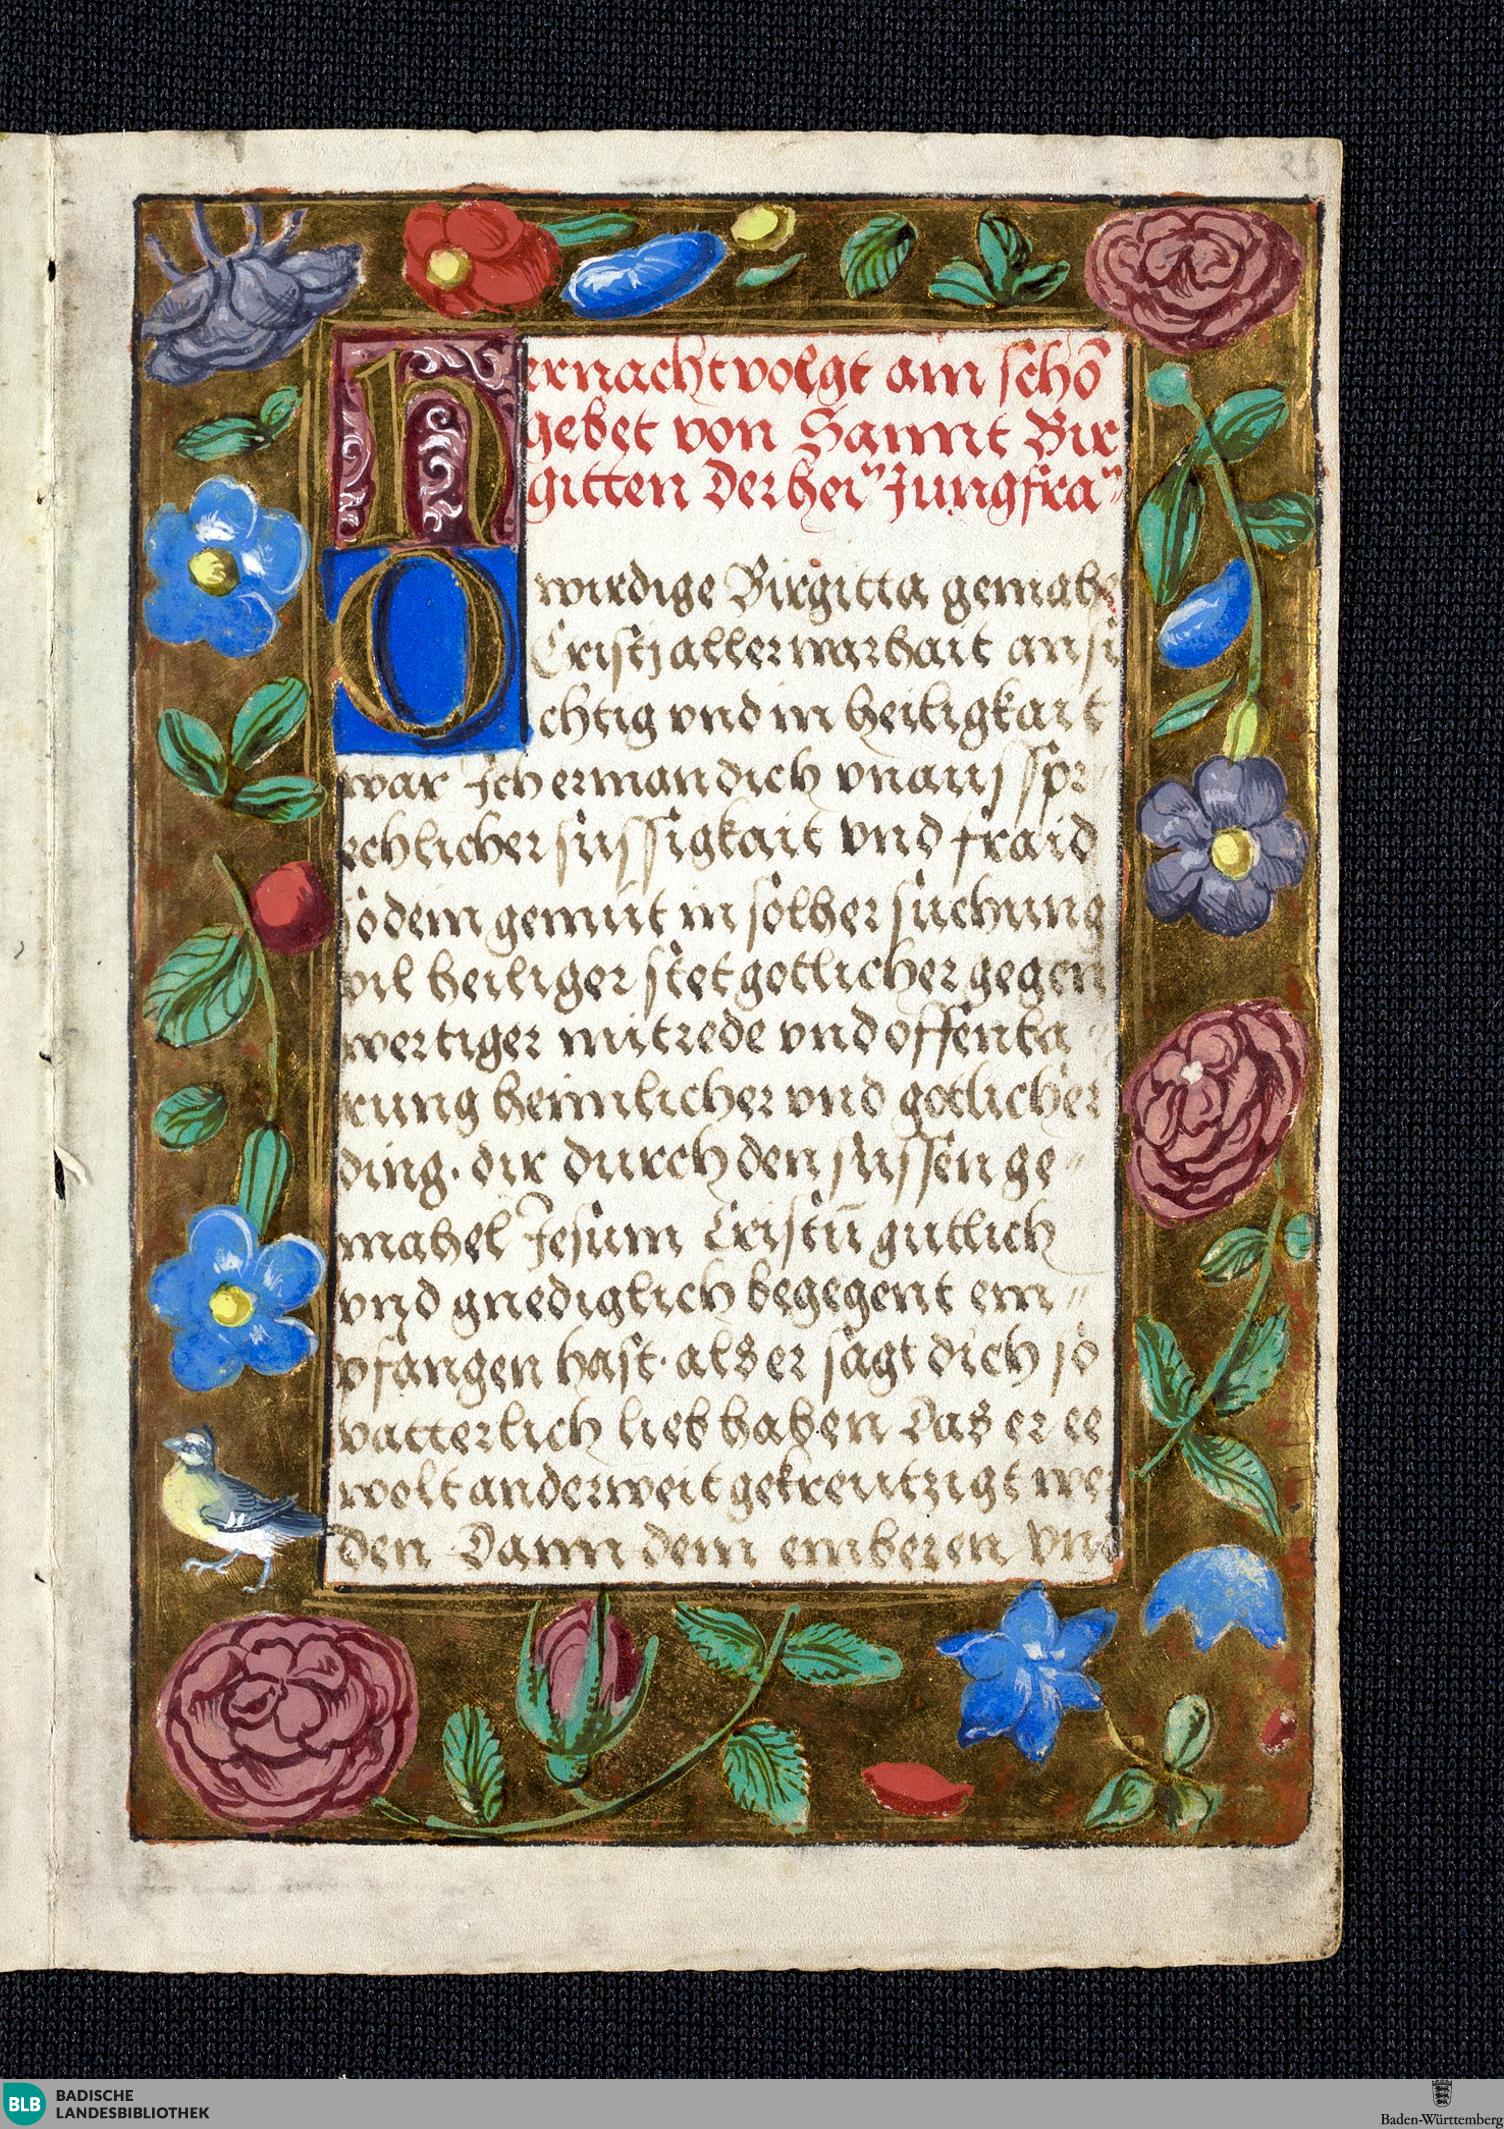 26
Hernacht volgt ain schō
gebet von Sannt Bir
gitten Der hei" Jungfra"
O wirdige Birgitta gemahe
Cristj aller warhait ansi
chtig vnd in heiligkait
war Ich erman dich vnauß spr
echlicher süssigkait vnd fraid
so dem gemüt in sölher süchung
vil heiliger stet gotlicher gegen
wertiger mitrede vnd offenba
rung heimlicher vnd gotlicher
ding. dir durch den süssen ge"
mahel Jesum Cristū gutlich
vnd gnediglich begegent em"
pfangen hast. als er sagt dich so
vatterlich lieb haben Das er ee
wolt anderweit gekreutzigt wer
den Dann dem emberen vnd
BLB
BADISCHE
LANDESBIBLIOTHEK
Baden-Württemberg